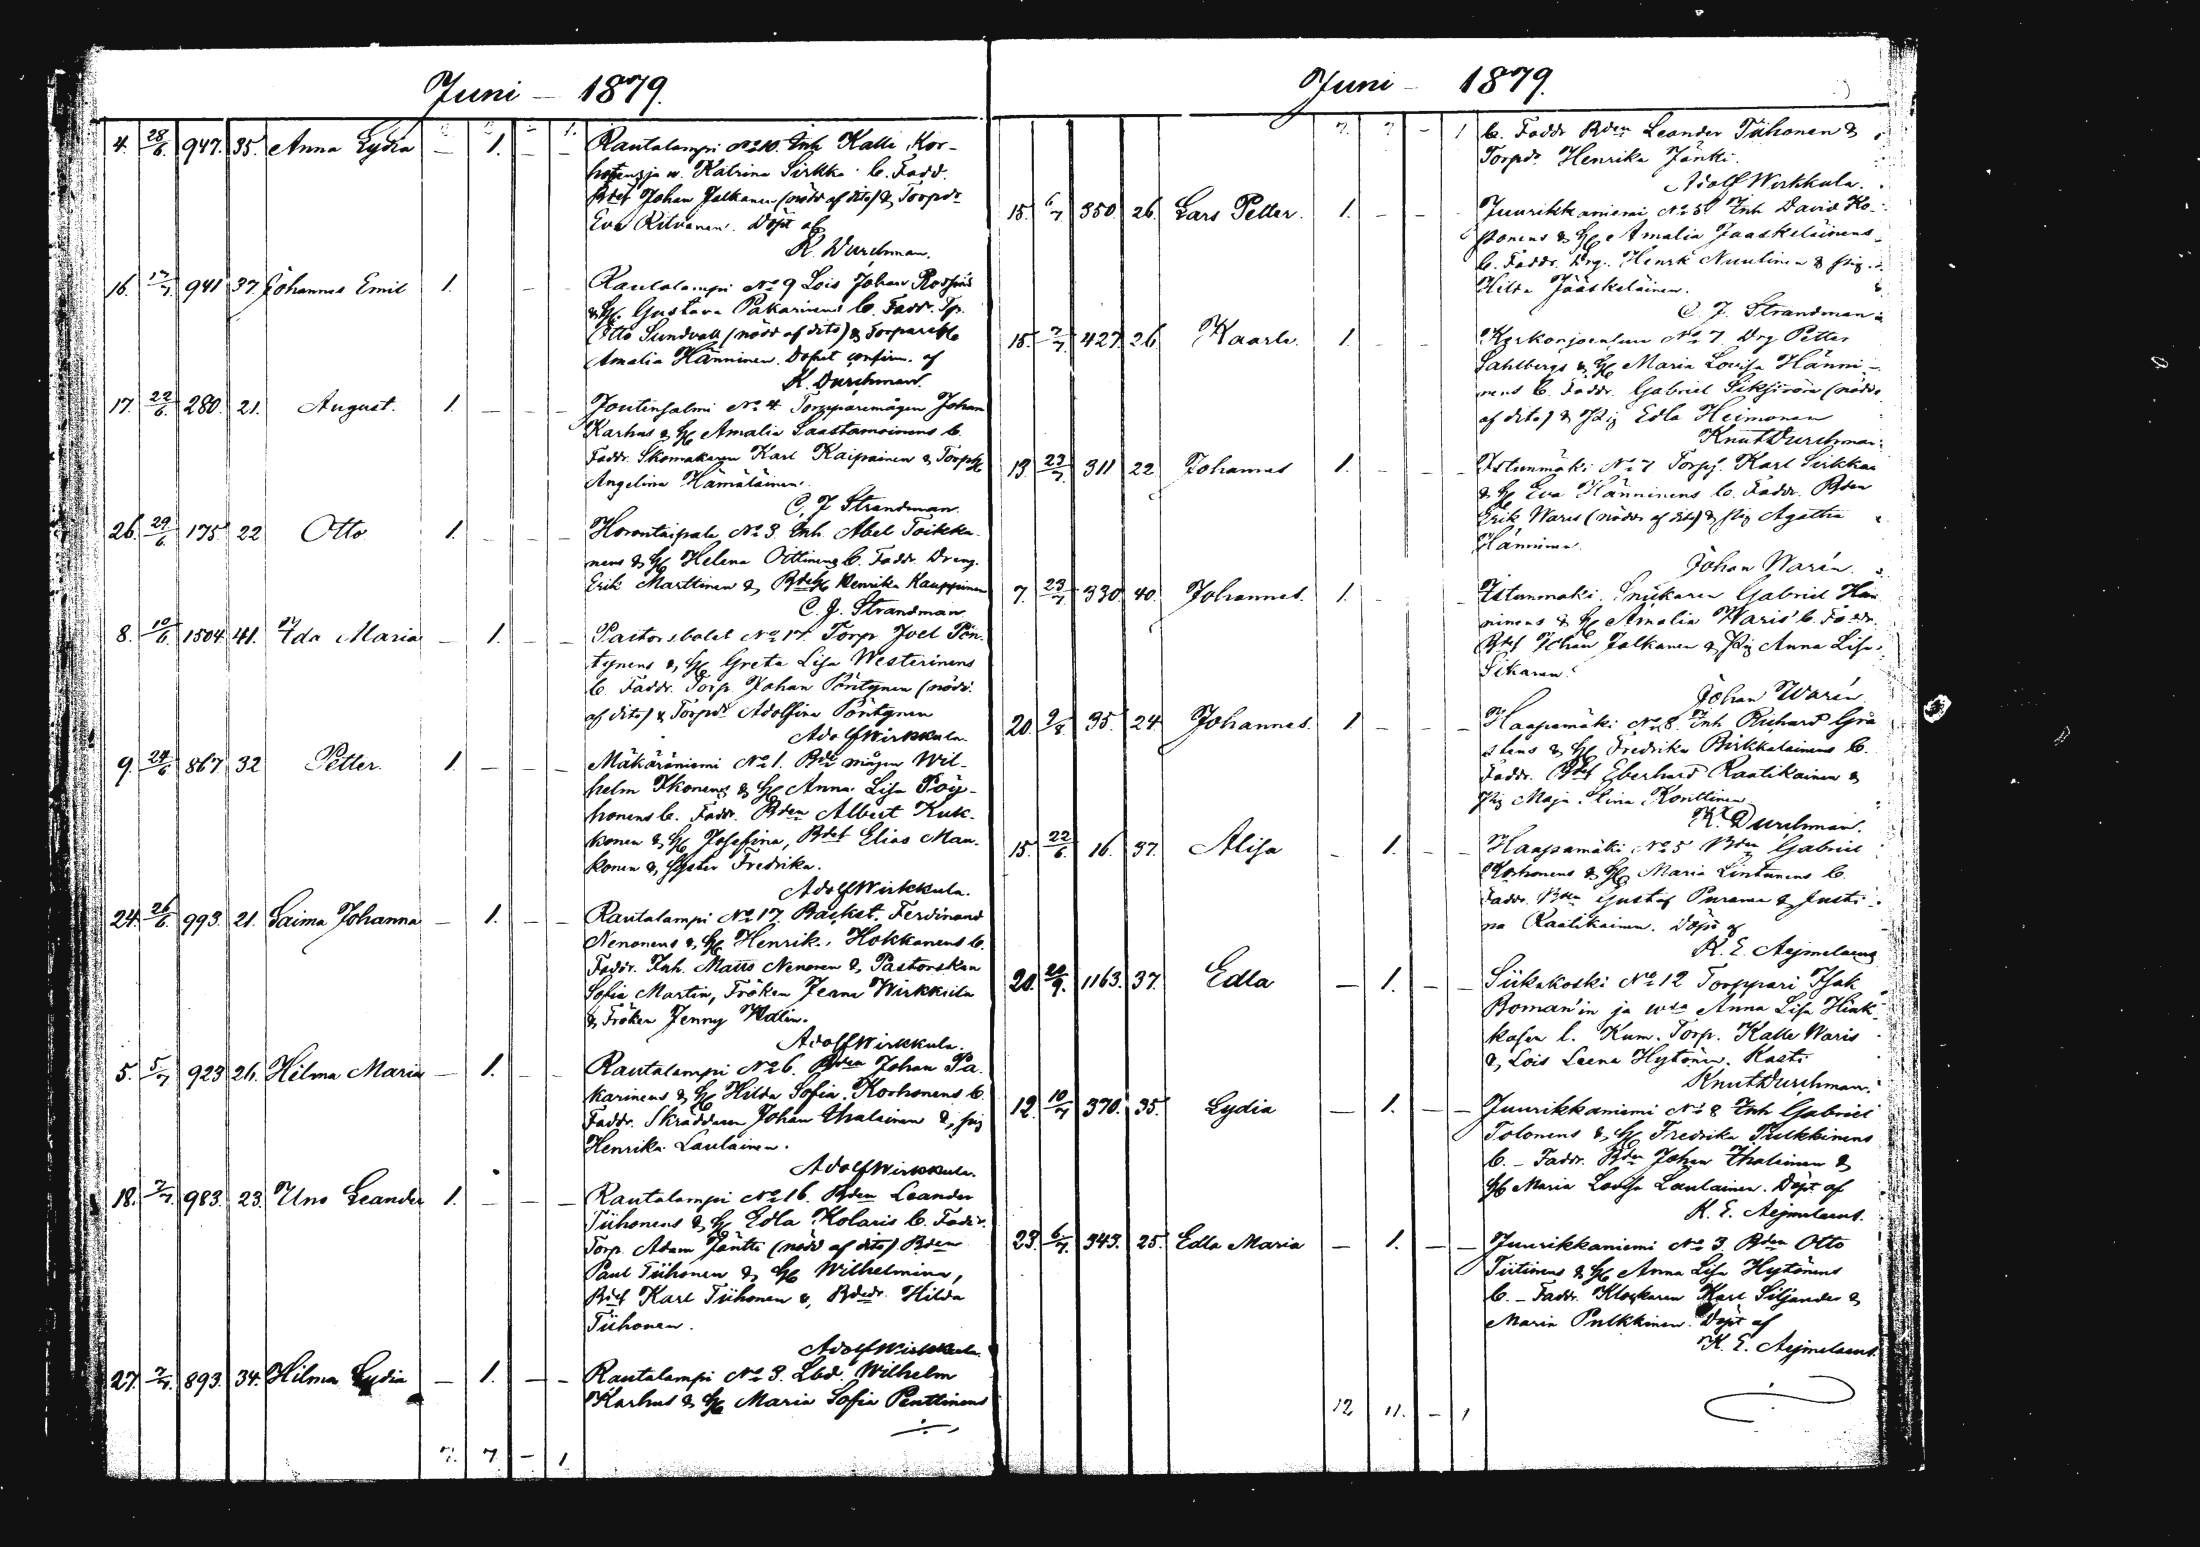 Juni — 1879.
4. 28/6. 947. 35. Anna Lydia — 1. — — Rantalampi No 10. Inh. Kalle Kor-
hosen ja w. Katrina Sirkka b. Fadd.
Bdef Johan Jalkanen (nöddöpt af dito) & Torpdr
Eva Ritvanen. Döpt af
K. Durchman.
16. 17/7. 941 37 Johannes Emil 1. — — Rautalampi No 9 Lois Johan
& H. Gustava Pakarinens b. Faddr. Tp.
Otto Sundvall (nödd af dito) & Torpare H
Amalia Hänninen. Dopet confirm. af
K. Durchman.
17. 22/6. 280. 21. August. 1. — — — Joutensalmi No 4. Torpparemågen Johan
Karhus & H Amalia Laastamoinens b.
Faddr. Skomakaren Karl Kaipainen & Torp H
Angelina Hämäläinen.
C. J. Strandman.
26. 29/6. 175 22 Otto 1. — — — Horontaipale No 3. Inh. Abel Toikka-
nens & H Helena Oittinens b. Faddr. Dreng.
Erik Marttinen & Bde H Henrika Kauppinen
C. J. Strandman
8. 10/6 1504. 41. Ida Maria — 1. — — Pastorsbolet No 17. Torpr Joel Pön-
tynens & H Greta Lisa Westerinens
b. Faddr. Torp. Johan Pöntynen (nödd.
af dito) & Torpdr Adolfina Pöntynen
Adolf Wirkkula.
9. 24/6 867 32 Petter. 1. — — — Mäkäräniemi No 1. Bde mågen Wil-
helm Ikonens & H Anna Lisa Pöy-
hönens b. Faddr. Bden Albert Kuk-
konen & H Josefina, Bdef Elias Man-
konen & Syster Fredrika.
Adolf Wirkkula.
24. 26/6. 993. 21. Saima Johanna — 1. — — Rautalampi No 17. Backst. Ferdinand
Nenonens & H Henrik. Hokkanens b.
Faddr. Inh. Matts Nenonen & Pastorskan
Sofia Martin, Fröken Jenni Wirkkula
& Fröken Jenny Hdlin.
Adolf Wirkkula.
5. 5/7 923 26. Hilma Maria — 1. — — Rautalampi No 6. Bden Johan Pa-
karinens & H Hilda Sofia Korhonens b.
Faddr. Skräddaren Johan Ihalainen & pig
Henrika Laulainen.
Adolf Wirkkula.
18. 7/7. 983. 23. Uno Leander 1. — — — Rautalampi No 16. Bden Leander
Tiihonens & H Edla Kolaris b. Faddr.
Torp. Adam Jäntti (nödd af dito) Bden
Paul Tiihonen & H Wilhelmina,
Bdef Karl Tiihonen & Bdedr. Hilda
Tiihonen.
Adolf Wirkkula.
27. 7/7. 893. 34. Hilma Lydia — 1. — — Rautalampi No 3. Lbd. Wilhelm
Karhus & H Maria Sofia Penttinens
7. 7. — 1.
Juni — 1879.
7. 7 — 1 b. Faddr Bden Leander Tiihonen &
Torpdr Henrika Jäntti.
Adolf Wirkkula.
15. 6/7 350. 26. Lars Petter. 1. — — Juurikkaniemi No 5 Inh David Ko-
ponens & H Amalia Jääskeläinens
b. Faddr. Drg. Henrik Nuutinen & pig.
Hilda Jääskeläinen.
C. J. Strandman
15. 7/7. 427. 26. Kaarle. 1. — Kerkonjoensuu No 7 Drg Petter
Sahlbergs & H Maria Lovisa Hänni-
nens b. Faddr. Gabriel Sikström (nödd
af dito) & Pig Edla Heimonen
Knut Durchman.
13. 23/7. 311 22. Johannes 1. — — — Istunmäki No 7 Torpf. Karl Sirkkas
& H Eva Hänninens b. Faddr. Bden
Erik Waris (nödd af dito) & pig Agatha
Hänninen.
Johan Warén.
7. 23/7 330. 40. Johannes. 1. — — Istunmäki. Snickaren Gabriel Hän-
ninens & H Amalia Waris' b. Faddr.
Bdef Johan Jalkanen & Pig Anna Lisa
Sikanen.
Johan Warén
20. 9/8. 35. 24. Johannes. 1 — — — Haapamäki No 8. Inh Richard Grö-
& H Fredrika Birkkalainens b.
Faddr. Bdef Eberhard Raatikainen &
Pig Maja Stina Konttinen
K. Durchman.
15. 22/6. 16. 37. Alisa — 1. — — Haapamäki No 5 Bden Gabriel
Korhonens & H Maria Lintunens b.
Faddr. Bden Gustaf Puranen & Justi-
na Raatikainen. Döpt af
K. E. Aejmelaeus
20. 20/9. 1163. 37. Edla — 1. — — Siikakoski No 12 Torppari Isak
Roman'in ja wda Anna Lisa Hink-
kasen l. Kum. Torp. Kalle Waris
& Lois Leena Hytönen. Kasti
Knut Durchman.
12 10/7 370. 35. Lydia — 1. — — Juurikkaniemi No 8 Inh Gabriel
Tolonens & H Fredrika Pulkkinens
b. — Faddr. Bden Johan Ihalainen &
H Maria Lovisa Laulainen. Döpt af
K. E. Aejmelaeus.
23. 6/7. 343. 25. Edla Maria — 1. — — Juurikkaniemi No 3. Bden Otto
Tiitinens & H Anna Lisa Hytönens
b. — Faddr. Klockaren Karl Siljander &
Maria Pulkkinen. Döpt af
K. E. Aejmelaeus.
12 11. — 1